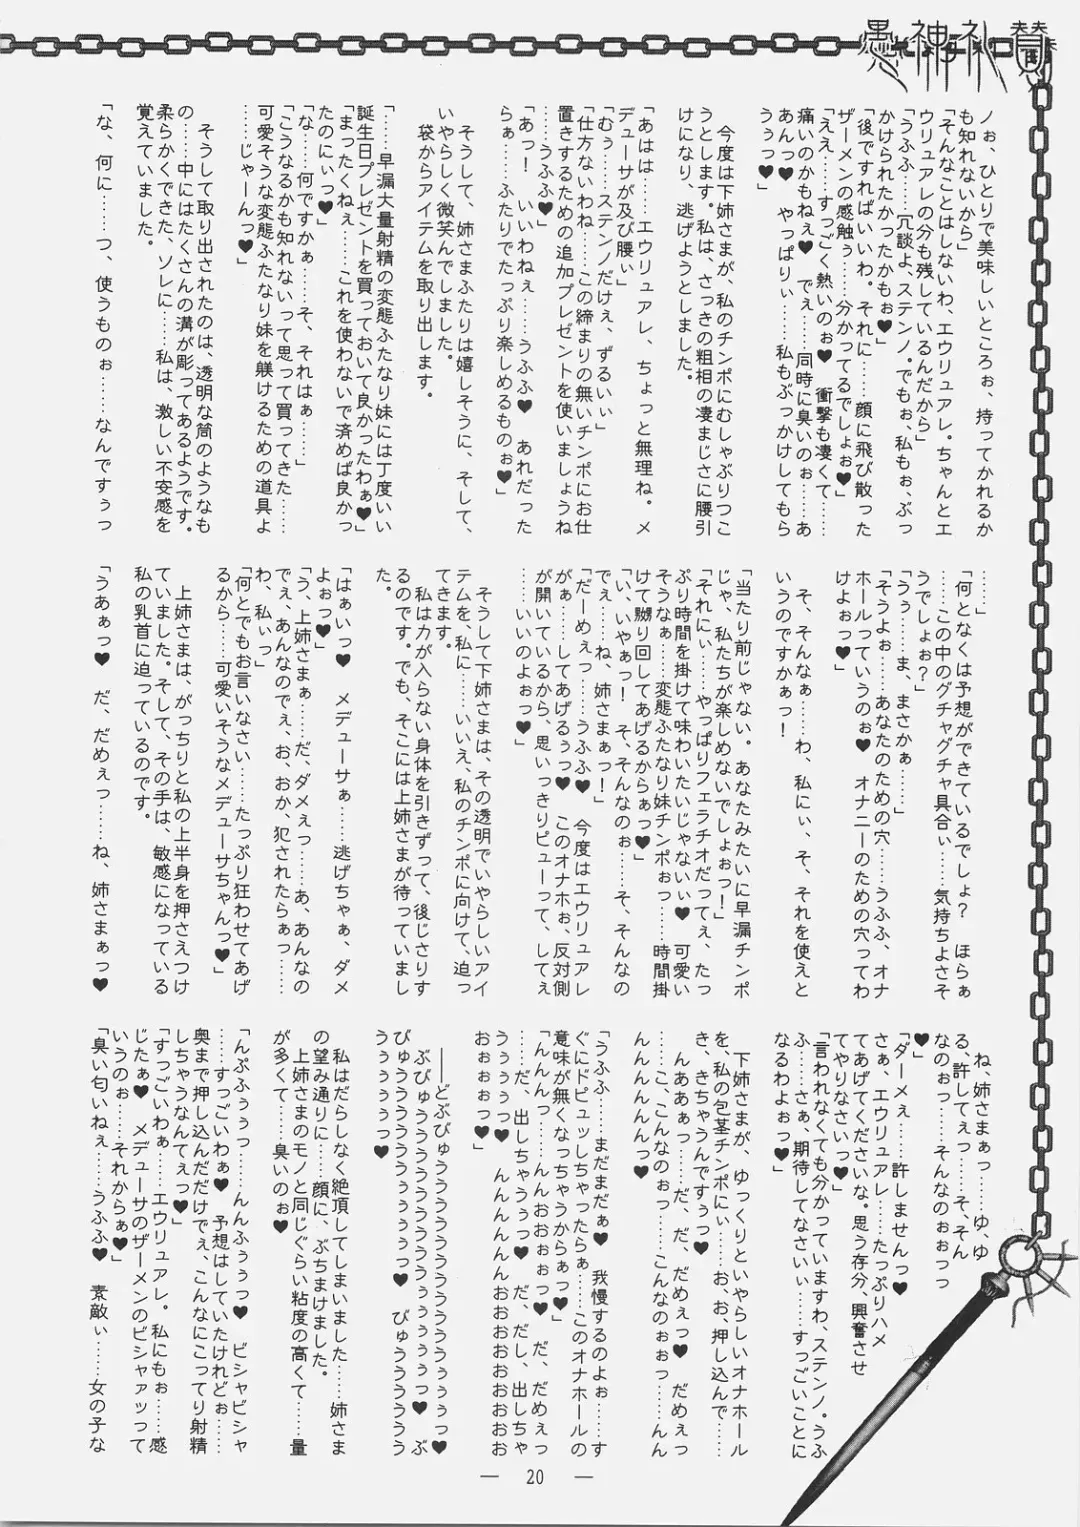 愚神礼賛
ノぉ、ひとりで美味しいところぉ、持ってかれるか
も知れないから」
「そんなことはしないわ、エウリュアレ。ちゃんとエ
ウリュアレの分も残しているんだから」
「うふふ……冗談よ、ステンノ。でもぉ、私もぉ、ぶっ
かけられたかったかもぉ♥」
「後ですればいいわ。それに……顔に飛び散った
ザーメンの感触ぅ……分かってるでしょぉ♥」
「ええ……すっごく熱いのぉ♥　衝撃も凄くて……
痛いのかもねぇ♥　でぇ……同時に臭いのぉ……あ
あんっ♥　やっぱりぃ……私もぶっかけしてもら
うぅっ♥」
　今度は下姉さまが、私のチンポにむしゃぶりつこ
うとします。私は、さっきの粗相の凄まじさに腰引
けになり、逃げようとしました。
「あはは……エウリュアレ、ちょっと無理ね。メ
デューサが及び腰ぃ」
「むぅ……ステンノだけぇ、ずるいぃ」
「仕方ないわね……この締まりの無いチンポにお仕
置きするための追加プレゼントを使いましょうね
……うふふ♥」
「あっ！　いいわねぇ……うふふ♥　あれだった
らぁ……ふたりでたっぷり楽しめるものぉ♥」
　そうして、姉さまふたりは嬉しそうに、そして、
いやらしく微笑んでしまいました。
　袋からアイテムを取り出します。
「……早漏大量射精の変態ふたなり妹には丁度いい
誕生日プレゼントを買っておいて良かったわぁ♥」
「まったくねぇ……これを使わないで済めば良かっ
たのにぃっ♥」
「な……何ですかぁ……そ、それはぁ……」
「こうなるかも知れないって思って買ってきた……
可愛そうな変態ふたなり妹を躾けるための道具よ
……じゃーんっ♥」
　そうして取り出されたのは、透明な筒のようなも
の……中にはたくさんの溝が彫ってあるようです。
柔らかくできた、ソレに……私は、激しい不安感を
覚えていました。
「な、何に……つ、使うものぉ……なんですぅっ
……」
「何となくは予想ができているでしょ？　ほらぁ
……この中のグチャグチャ具合ぃ……気持ちよさそ
うでしょぉ？」
「うぅ……ま、まさかぁ……」
「そうよぉ……あなたのための穴……うふふ、オナ
ホールっていうのぉ♥　オナニーのための穴ってわ
けよぉっ♥」
　そ、そんなぁ……わ、私にぃ、そ、それを使えと
いうのですかぁっ！
「当たり前じゃない。あなたみたいに早漏チンポ
じゃ、私たちが楽しめないでしょぉっ！」
「それにぃ……やっぱりフェラチオだってぇ、たっ
ぷり時間を掛けて味わいたいじゃないぃ♥　可愛い
そうなぁ……変態ふたなり妹チンポぉっ……時間掛
けて嬲り回してあげるからぁっ♥」
「い、いやぁっ！　そ、そんなのぉ……そ、そんなの
でぇ……ね、姉さまぁっ！」
「だーめぇっ……うふふ♥　今度はエウリュアレ
がぁ……してあげるぅっ♥　このオナホぉ、反対側
が開いているから、思いっきりピューって、してえ
……いいのよぉっ♥」
　そうして下姉さまは、その透明でいやらしいアイ
テムを、私に……いいえ、私のチンポに向けて、迫っ
てきます。
　私は力が入らない身体を引きずって、後じさりす
るのです。でも、そこには上姉さまが待っていまし
た。
「はぁいっ♥　メデューサぁ……逃げちゃぁ、ダメ
よぉっ♥」
「う、上姉さまぁ……だ、ダメぇっ……あ、あんなの
でぇ、あんなのでぇ、お、おか、犯されたらぁっ……
わ、私ぃっ」
「何とでもお言いなさい……たっぷり狂わせてあげ
るから……可愛いそうなメデューサちゃんっ♥」
　上姉さまは、がっちりと私の上半身を押さえつけ
ていました。そして、その手は、敏感になっている
私の乳首に迫っているのです。
「うあぁっ♥　だ、だめぇっ……ね、姉さまぁっ♥
　ね、姉さまぁっ……ゆ、ゆ
る、許してぇっ……そ、そん
なのぉっ……そんなのぉぉっっ
♥」
「ダーメぇ……許しませんっ♥
さぁ、エウリュアレ……たっぷりハメ
てあげてくださいな。思う存分、興奮させ
てやりなさいっ♥」
「言われなくても分かっていますわ、ステンノ。うふ
ふ……さぁ、期待してなさいぃ……すっごいことに
なるわよぉっ♥」
　下姉さまが、ゆっくりといやらしいオナホール
を、私の包茎チンポにぃ……お、お、押し込んで……
き、きちゃうんですぅっ♥
　んああぁっ……だ、だ、だめぇっ♥　だめぇっ
……こ、こんなのぉっ……こんなのぉぉっ……んん
んんんんんっ♥
「うふふ……まだまだぁ♥　我慢するのよぉ……す
ぐにドピュッしちゃったらぁ……このオナホールの
意味が無くなっちゃうからぁっ♥」
「んんんっ……んんおおぉぉっ♥　だ、だめぇっ
……だ、出しちゃうぅっ♥　だ、だし、出しちゃ
うぅぅぅぅっ♥　んんんんんおおおおおおおお
おおぉぉぉっ♥」
　――どぶびゅうううううううううぅぅぅっ♥
　ぶびゅうううううううううぅぅぅぅっ♥　ぶ
びゅううううううううぅぅぅぅっ♥　びゅううううう
うぅぅぅぅっ♥
　私はだらしなく絶頂してしまいました……姉さま
の望み通りに……顔に、ぶちまけました。
　上姉さまのモノと同じぐらい粘度の高くて……量
が多くて……臭いのぉ♥
「んぷふぅぅっ……んんふぅぅっ♥　ビシャビシャ
……すっごいわぁ♥　予想はしていたけれどぉ……
奥まで押し込んだだけでぇ、こんなにこってり射精
しちゃうなんてぇっ♥」
「すっごいわぁ……エウリュアレ。私にもぉ……感
じたぁ♥　メデューサのザーメンのビシャァッって
いうのぉ……それからぁ♥」
「臭い匂いねぇ……うふふ♥　素敵ぃ……女の子な
― 20 ―